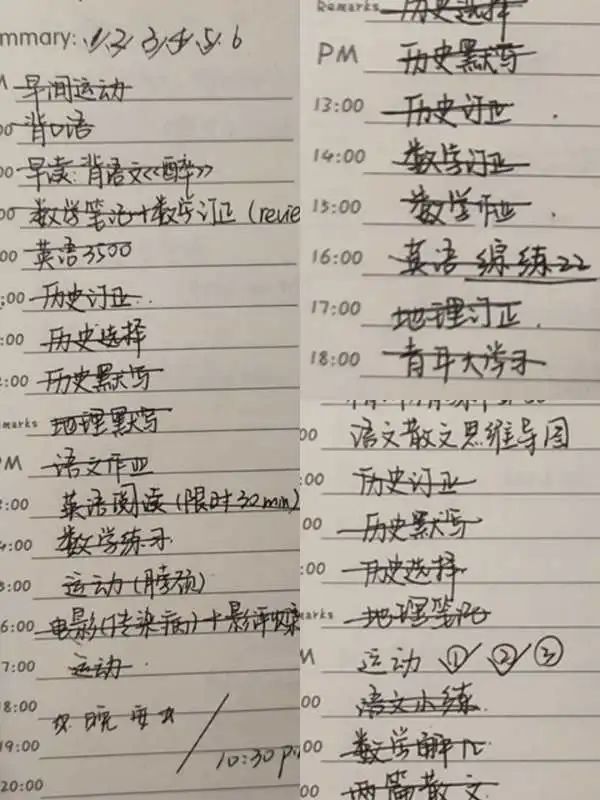 mmary: 1 2 3 4 5 6
早间运动
00 背口语
早读:背语文《醉》
00 数学笔记+数学订正(revie
00 英语3500
:00 历史订正
:00 历史选择
:00 历史默写
marks 地理默写
PM 语文作业
:00 英语阅读(限时30min)
4:00 数学练习
:00 运动(脖颈)
16:00 电影(传染病)+影评
17:00 运动
18:00
19:00 10:30 p
20:00
Remarks 历史选择
PM 历史默写
13:00 历史订正
14:00 数学订正
15:00 数学作业
16:00 英语 综练22
17:00 地理订正
18:00 青年大学习
00 语文散文思维导图
:00 历史订正
00 历史默写
00 历史选择
marks 地理笔记
M 运动 ① ② ③
00 语文小练
00 数学解几
00 两篇散文